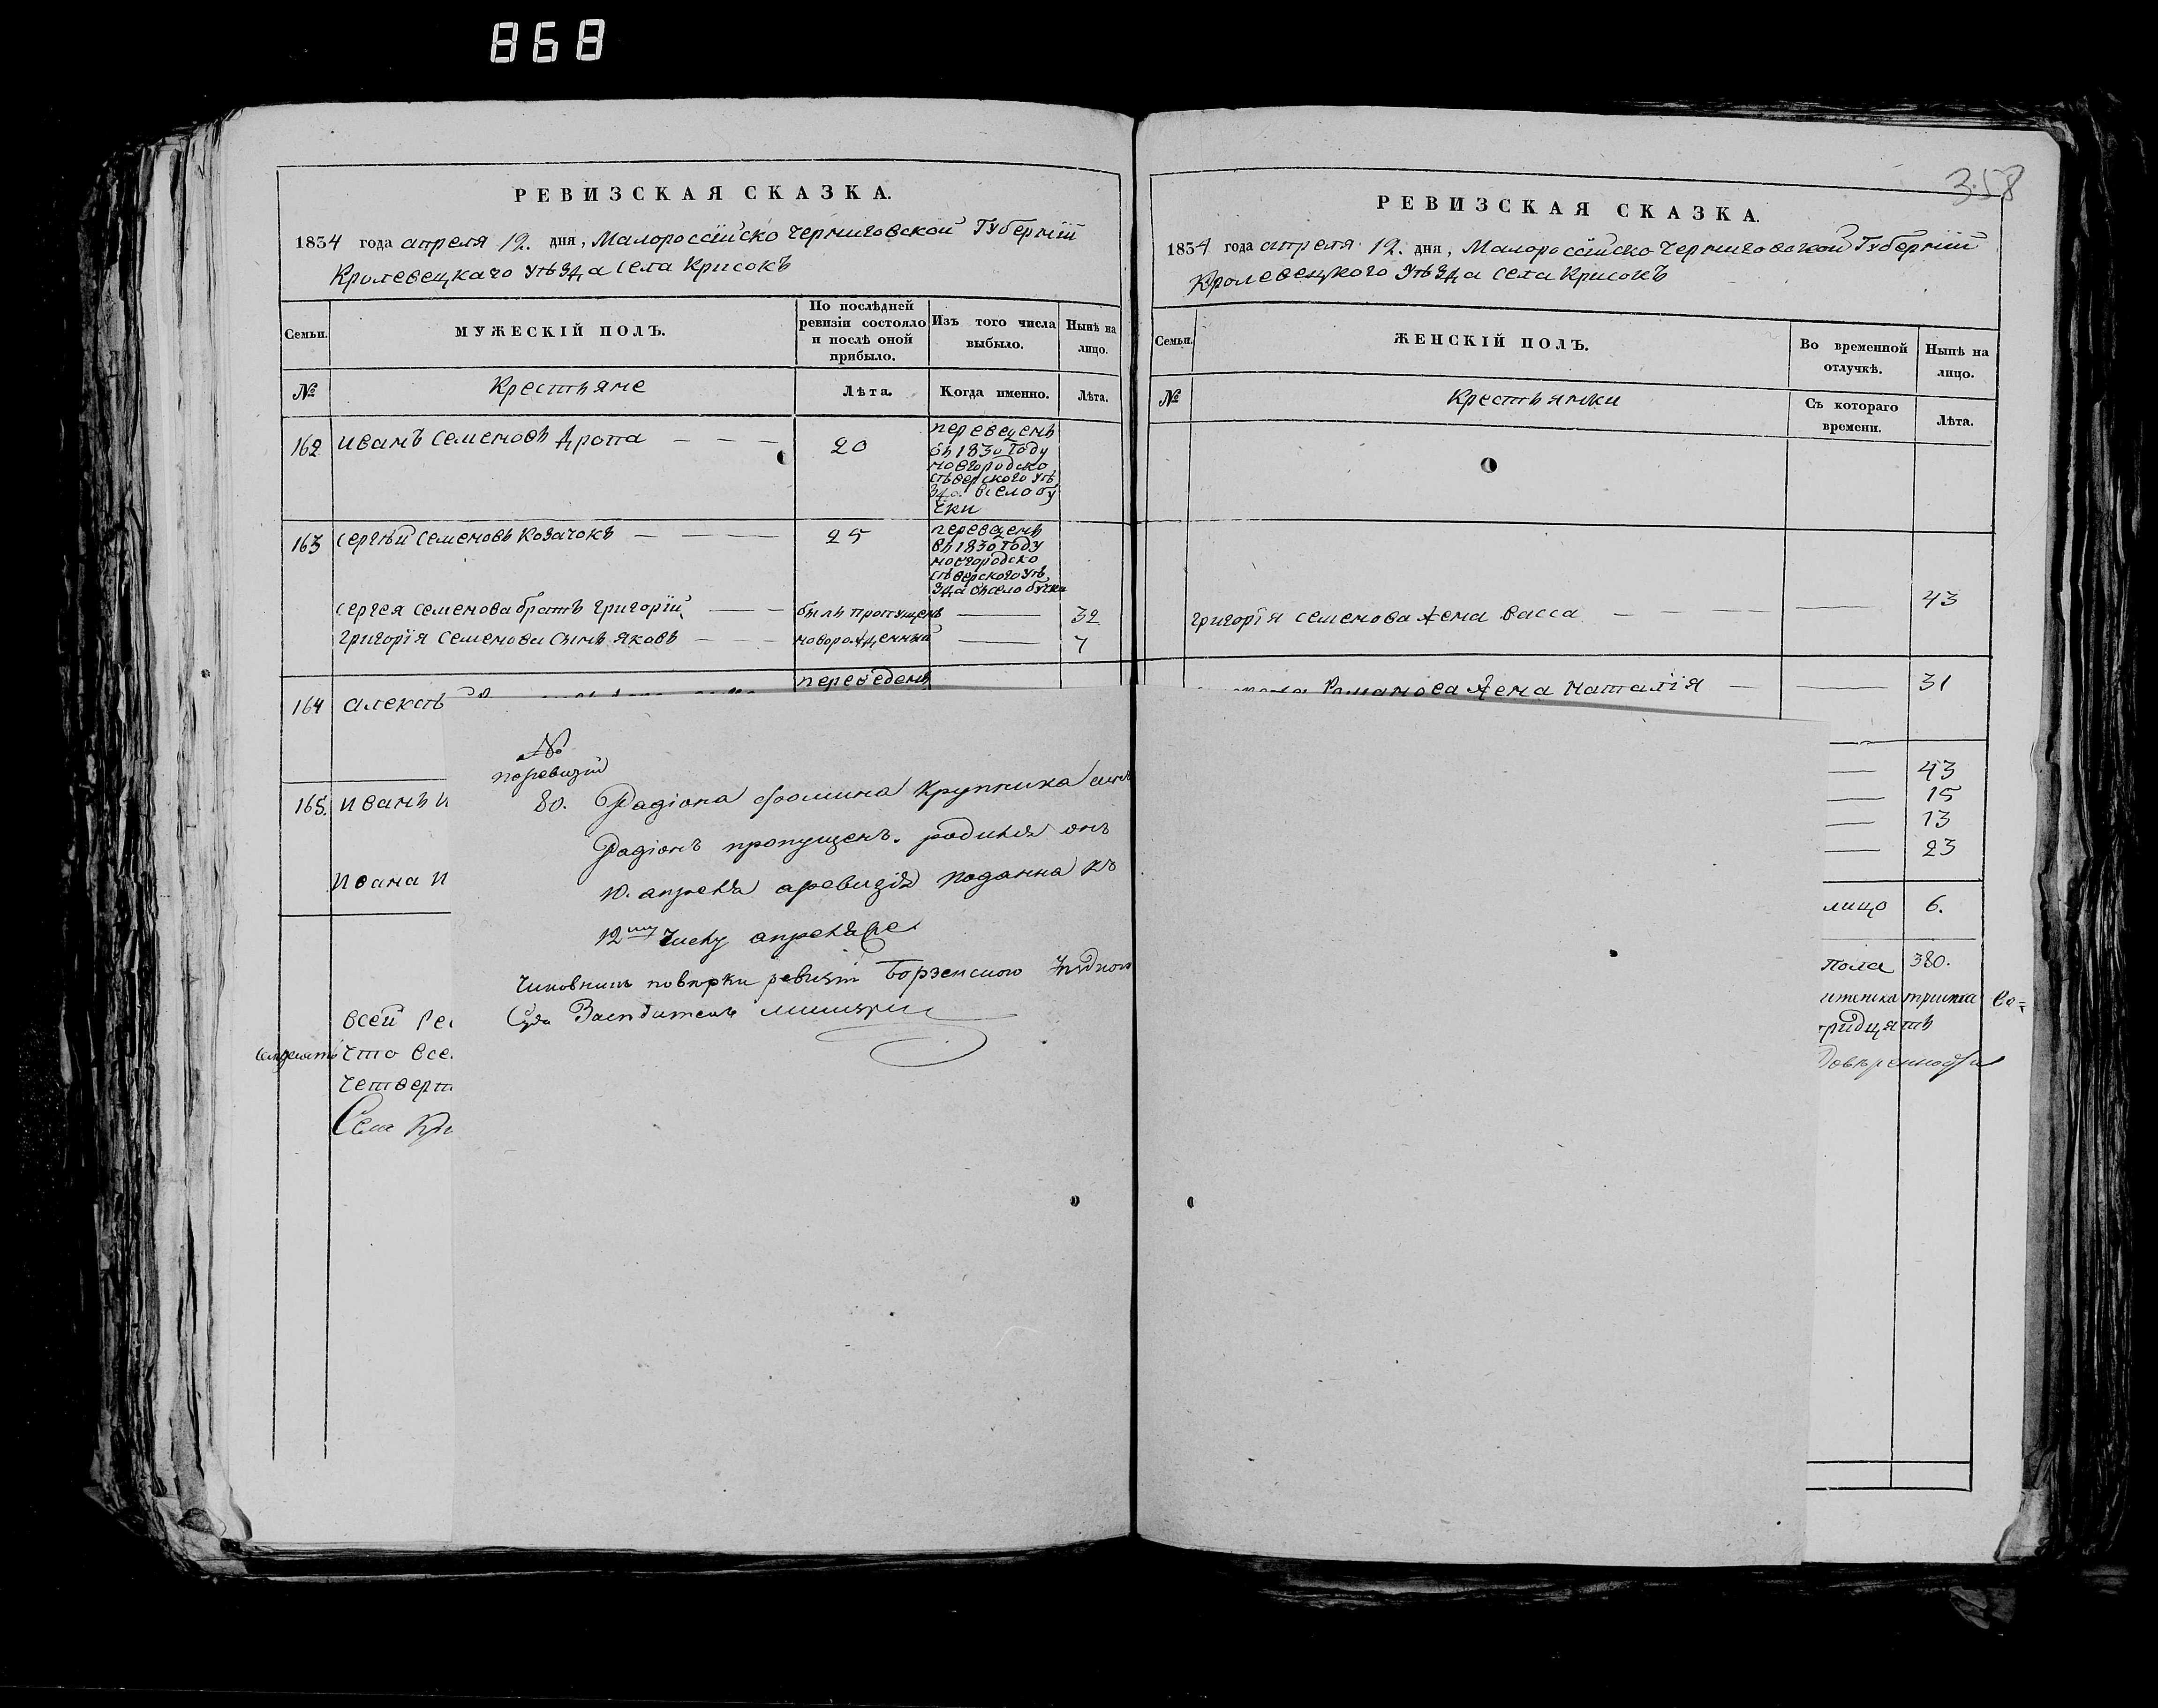 868
358
РЕВИЗСКАЯ СКАЗКА.
1834 года апреля 12. дня, Малороссійско Черниговской Губерніи
Кролевецкаго уѣзда села Крисокъ
Семьи.
МУЖЕСКІЙ ПОЛЪ.
По послѣдней
ревизіи состояло
и послѣ оной
прибыло.
Изъ того числа
выбыло.
Нынѣ на
лицо.
№
Крестьяне
Лѣта.
Когда именно.
Лѣта.
162 Иванъ Семеновъ Дропа — — — 20
переведенъ
въ 1830 году
новгородско
сѣверского уѣ
зда в село бу
чки
163 Сергѣй Семеновъ Козачокъ — — — 25
переведенъ
въ 1830 году
новгородско
сѣверского уѣ
зда въ село бучки
Сергея Семенова братъ Григорій — — былъ пропущенъ — 32
Григорія Семенова сынъ Яковъ — — новорожденный — 7
переведенъ
164 Алексѣ
165. Иванъ И
Ивана И
всей Ре
что все
четверт
Села Кри
№
поревизіи
80. Радіона Фомина Крупника сынъ
Радіонъ пропущенъ. родился онъ
10. апреля а ревизія поданна къ
12му числу апреля
Чиновникъ повѣрки ревизіи Борзенского
Суда Засѣдатель
РЕВИЗСКАЯ СКАЗКА.
1834 года апреля 12. дня, Малороссійско Черниговской Губерніи
Кролевецкого уѣзда села Крисокъ
Семьи.
ЖЕНСКІЙ ПОЛЪ.
Во временной
отлучкѣ.
Нынѣ на
лицо.
№
Крестьянки
Съ котораго
времени.
Лѣта.
Григорія Семенова жена Васса — — — — — 43
Романова жена Наталія — — 31
— 43
— 15
— 13
— 23
лицо 6.
пола 380.
тридцять